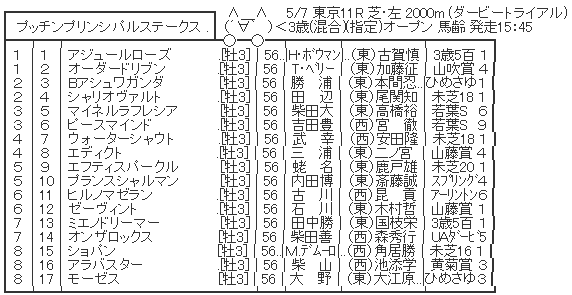 プッチンプリンシパルステークス . ( ´∀` ) 5/7 東京11R 芝・左 2000m (ダービートライアル)
＜3歳(混合)(指定)オープン 馬齢 発走15:45
1 1 アジュールローズ ..[牡3] 56 ..H・ボウマン ..(東)古賀慎 3歳5百 1
1 2 オーダードリブン ..[牡3] 56 ..T・ベリー ..(東)加藤征 山吹賞 4
2 3 Bアシュワガンダ ..[牡3] 56 勝 浦 (東)本間忍.. ひめさゆ1
2 4 シャリオヴァルト ..[牡3] 56 田 辺 (東)尾関知 未芝18 1
3 5 マイネルラフレシア ..[牡3] 56 柴田大 (東)高橋裕 若葉S 6
3 6 ピースマインド ..[牡3] 56 吉田豊 (西)宮 徹 若葉S 9
4 7 ウォーターシャウト ..[牡3] 56 武 幸 (西)安田隆 未芝18 1
4 8 エディクト ..[牡3] 56 三 浦 (東)二ノ宮 山藤賞 4
5 9 エフティスパークル ..[牡3] 56 蛯 名 (東)鹿戸雄 未芝20 1
5 10 プランスシャルマン ..[牡3] 56 内田博 (東)斎藤誠 スプリング4
6 11 ヒルノマゼラン ..[牡3] 56 古 川 (西)昆 貢 アーリントン6
6 12 ゼーヴィント ..[牡3] 56 石 川 (東)木村哲 山藤賞 1
7 13 ミエノドリーマー ..[牡3] 56 田中勝 (東)国枝栄 3歳5百 1
7 14 オンザロックス ..[牡3] 56 柴田善 (西)森秀行 UAダービ5
8 15 ショパン ..[牡3] 56 M.デムーロ (西)角居勝 未芝16 1
8 16 アラバスター ..[牡3] 56 柴 山 (西)池添学 黄菊賞 3
8 17 モーゼス ..[牡3] 56 大 野 (東)大江原.. ひめさゆ3